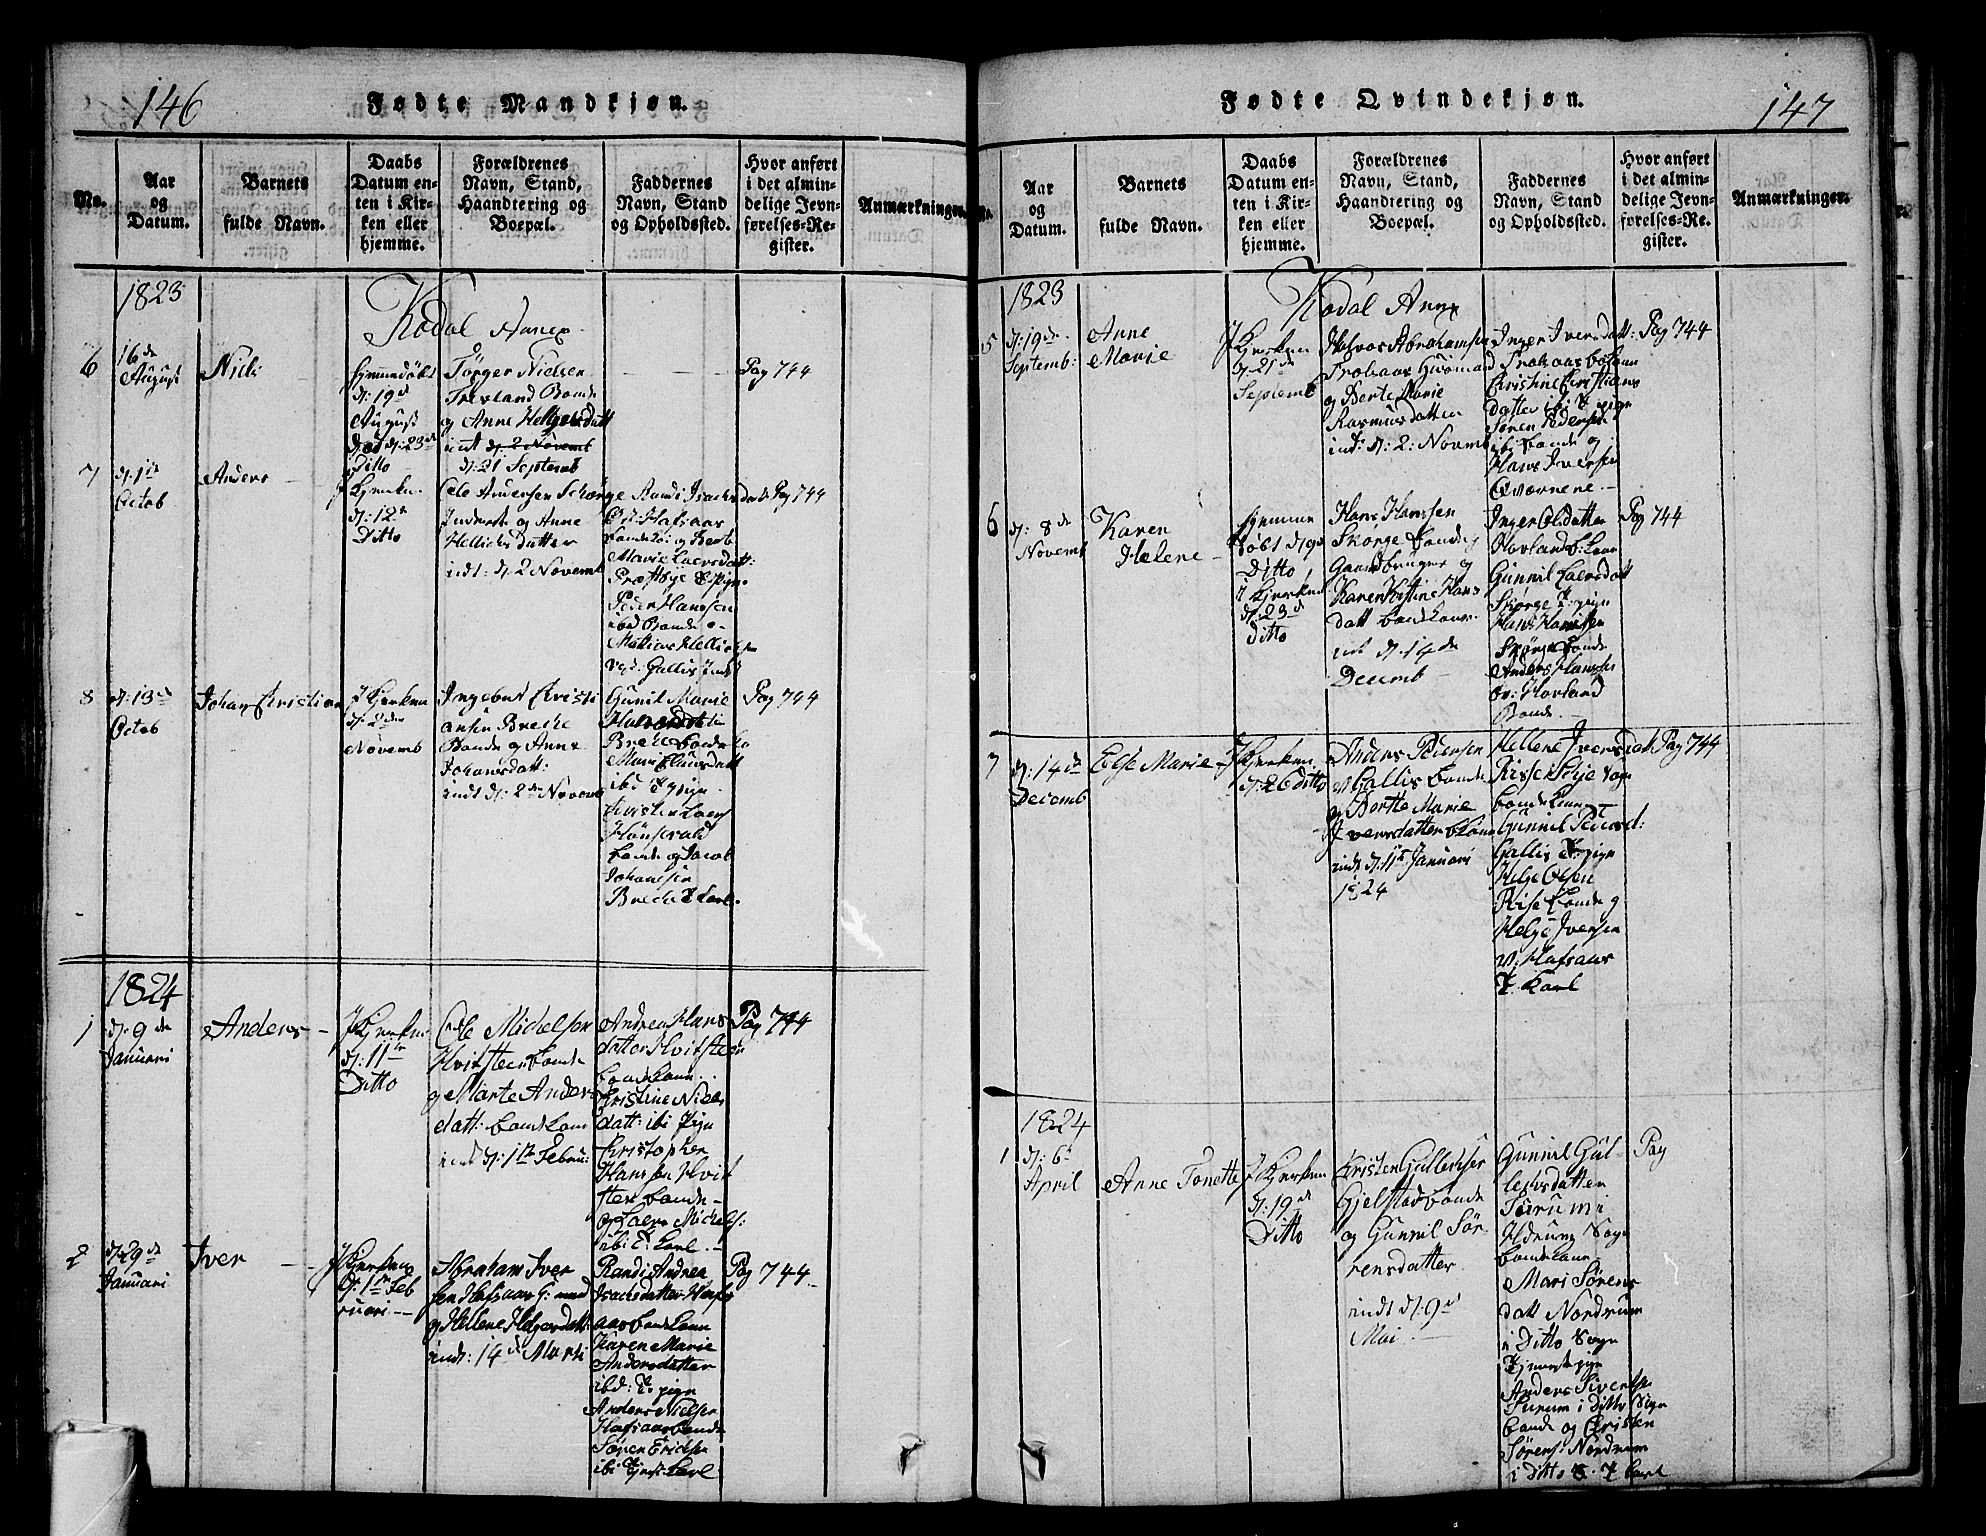 146
Fødte Mandkjøn.
No.
Aar
og
Datum.
Barnets
fulde Navn.
Daabs
Datum en-
ten i Kir-
ken eller
hjemme.
Forældrenes
Navn, Stand,
Haandtering og
Boepæl.
Faddernes
Navn, Stand
og Opholdssted.
Hvor anført
i det almin-
delige Jevn-
førelses-Re-
gister.
Anmærkninger.
1823
Kodal Annex
6
16de
August
Niels
Hjemmedøbt
d: 19de
August
Død d: 23de
Ditto
Törger Nielsen
Trevland Bonde
og Anne Helgesdatt
indt d: 2 Novemb
d: 21 Septemb
Pag 744
7
d: 1te
Octob
Anders
I Kjerken
d: 12te
Ditto
Ole Andersen Schorge
Inderst og Anne
Hellicksdatter
indt: d: 2 Novemb
Randi Isachsdatt:
Hafsaas
Bonde og Berte
Marie Laersdatt:
Præsthøje T. pigen
Peder Hansen
ibid Bonde og
Mathias Hellichsen
Gallis
Pag 744
8
d: 13de
Octob
Johan Christian
I Kjerken
d: 2den
Novemb
Ingebret Christi
ansen Brecke
Bonde og Anne
Johansdatt:
indt d: 2de Novemb
Gunil Marie
Brecke Bonde
Marie Clausdatt
ibd T pign
Christen Laers
Hönsvald
bonde og Jacob
Johansen
Brecke T Karl.
Pag 744
1824
1
d: 9de
Januari
Anders
I Kjerken
d: 11te
Ditto
Ole Michelsen
Hvitsteen bonde
og Marte Anders
datt: bondekone
indt d: 1te Februa:
Andrea Hans
datter Hvitsteen
bondekone
Christine Niels
datt: ibi Pign
Christopher
Hansen Hvit
steen bonde
og Laers Michels:
ibi T. Karl.
Pag 744
2
d: 29de
Januari
Iver
I Kjerken
d: 1te Feb
ruari
Abraham Iver
sen Hafsaas G: mand
og Hellene Helgesdatt:
indt: 14de Marti
Randi Andrea
Isachsdatter Hafs
aas bondekone
Karen Marie
Andersdatter
ibd: T. pign
Anders Nielsen
Hafsaas bonde
Søren Ericksen
ibi Tjenst Karl
Pag 744
147
Fødte Qvindekjøn.
No.
Aar
og
Datum.
Barnets
fulde Navn.
Daabs
Datum en-
ten i Kir-
ken eller
hjemme.
Forældrenes
Navn, Stand,
Haandtering og
Boepæl.
Faddernes
Navn, Stand
og Opholdssted.
Hvor anført
i det almin-
delige Jevn-
førelses-Re-
gister.
Anmærkninger.
1823
Kodal Annex
5
d: 19de
Septemb:
Anne
Marie
I Kjerken
d: 21de
Septemb
Halvor Abrahamsen
Trollsaas Huusmand
og Berte Marie
Rasmusdatter
indt: d: 2: Novemb
Inger Iversdatt:
Trolsaas bokone
Christine Christians
datter ibi T. pign
Søren Pedersen
ibi bonde og
Hans Iversen
Qværnene.
Pag 744
6
d: 8de
Novemb
Karen
Helene
hjemme
døbt d: 9de
Ditto
I Kjerken
d: 23de
Ditto
Hans Hanssen
Skorge bonde
Gaardbruger og
Karen Kistine Hans
datt bondekone
indt d: 14de
Decemb
Inger Olsdatter
Hovland b: kone
Gunnil Laersdatt
Skorge T. pign
Hans Hansen
Skörge bonde
Anders Hansen
Hovland
Bonde.
Pag 744
7
d: 14de
Decemb
Else Marie
I Kjerken
d: 26 Ditto
Anders Pedersen
Gallis bonde
og Berte Marie
Iversdatter b kone
indt d: 11te Januari
1824
Hellene Iversdatt
Risse Sogn
bondekone
Gunnil Pedersd:
Gallis T: pign
Helge Olsen
Rise bonde og
Helge Iversen
Hafsaas
T. Karl
Pag 744
1824
1
d: 6te
April
Anne Tonette
I Kjerken
d: 19de
Ditto
Kristen Gulleichsen
Gjelstad bonde
og Gunnil Sör-
rensdatter
indt d: 9de
Mai.
Gunnil Gul-
lechsdatter
Furum i
Hedrum Sogn
bondekone
Mari Sörens
datt Nordrum
i Ditto Sogn
Tjenest pign
Anders Sivertsen
Furum i Ditto Sogn
bonde og Christen
Sörens: Nordrum
i Ditto S. T karl
Pag